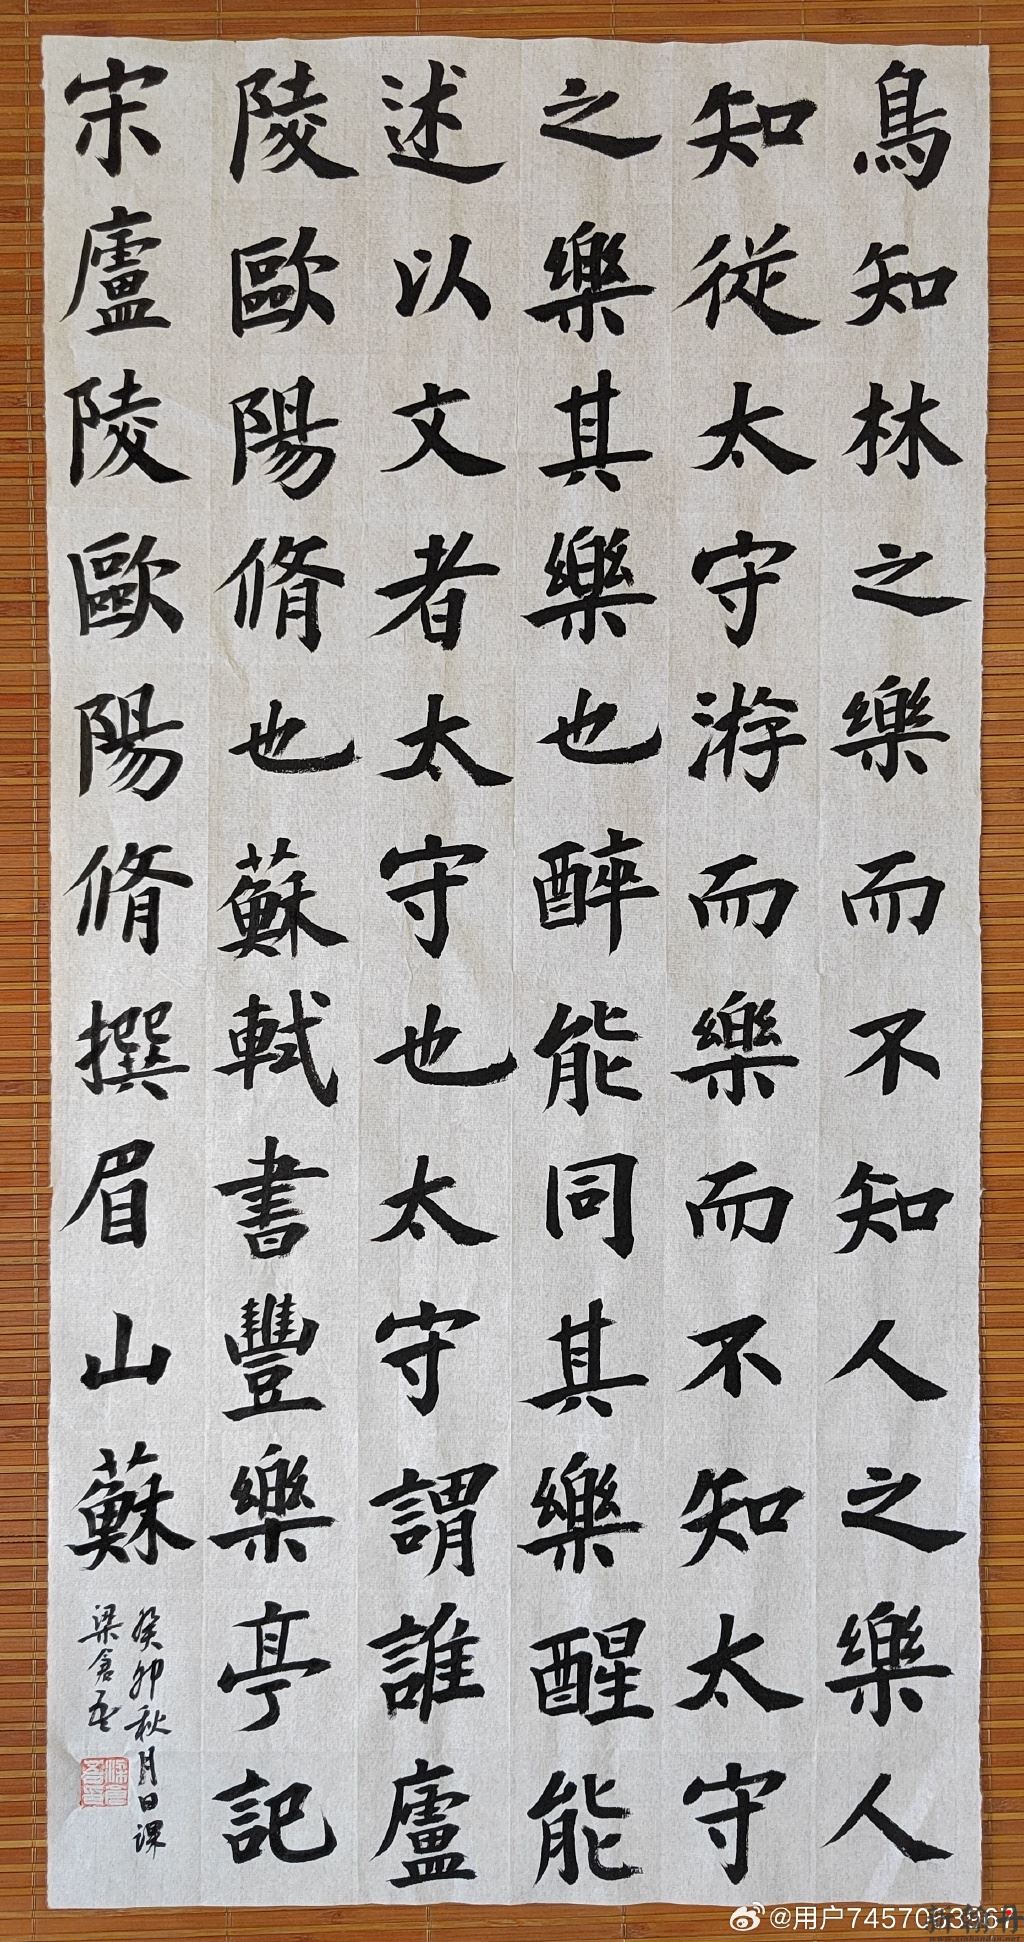 鳥知林之樂而不知人之樂人
知從太守游而樂而不知太守
之樂其樂也醉能同其樂醒能
述以文者太守也太守謂誰廬
陵歐陽脩也蘇軾書豐樂亭記
宋廬陵歐陽脩撰眉山蘇
癸卯秋月日課
梁
@用户7457063967